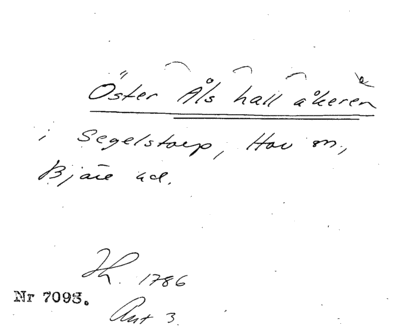 Öster Åls hall åkeren
i Segelstorp, Hov sn,
Bjäre hd.
Lh. 1786
Nr 7093.
Akt 3.